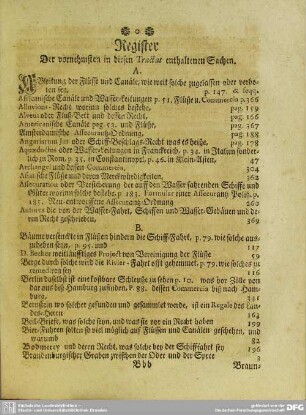 Register
Der vornehmsten in diesen Tractat enthaltenen Sachen.
A.
Ableitung der Flüsse und Canäle, wie weit solche zugelassen oder verboten sey, p. 147. & seqq.
Africanische Canäle und Wasser-Leitungen p. 51. Flüsse u. Commercia p.366
Alluvions-Recht worinn solches bestehe, pag. 159
Alvei oder Fluß-Bett und dessen Recht, pag. 166
Americanische Canäle pag. 52. und Flüsse, pag. 367
Amsterdamische Assecurantz-Ordnung, pag. 188
Angariarum Jus oder Schiff-Beschlags-Recht was es heiße, pag. 178
Aquæducte oder Wasser-Leitungen in Franckreich, p. 34. in Italien sonderlich zu Rom, p. 35. in Constantinopel, p. 46. in Klein-Asien, 47
Archangel, dessen Commercia, 304
Asiatische Flüsse und deren Merckwürdigkeiten, 362
Assecuration oder Versicherung der auf den Wasser fahrenden Schiffe und Güter worinn solche bestehe, p. 183. Formular einer Assecurantz Police,
185. Neu-entworffene Assecurantz-Ordnung 360
Autores die von der Wasser-Fahrt, Schiffen und Wasser-Gebäuen und deren Recht geschrieben, 369
B.
Bäume versenckte in Flüssen hindern die Schiff-Fahrt, p. 79. wie solche auszuheben seyn, p. 95. und 117
D. Bechers weitläufftiges Project von Vereinigung der Flüsse 59
Berge durch solche wird die Rivier-Fahrt offt gehemmet, p. 79. wie solches zu
116
Berlin daselbst ist eine kostbare Schleuse zu sehen p. 10. was für Zölle von
dar auf biß Hamburg zu finden, p. 83. dessen Commercia biß nach Hamburg. 311
Bernstein wo solcher gefunden und gesammlet werde, ist ein Regale des Landes-Herrn 164
Beil-Briefe, was solche seyn, und was sie vor ein Recht haben 159
Bier-Fuhren sollen so viel möglich auf Flüssen und Canälen geschehen, und
warum 82
Bodmerey und deren Recht, was solche bey der Schifffahrt sey 196
Brandenburgischer Graben zwischen der Oder und der Spree 3
Bbb Braun-